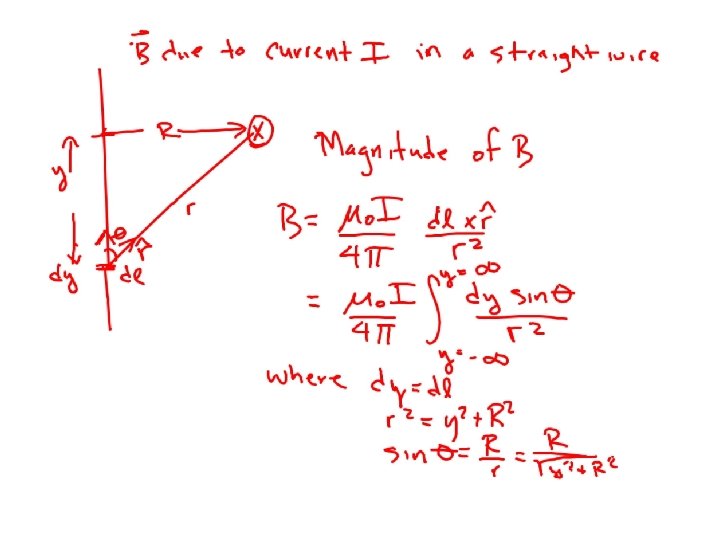 B⃗ due to current I in a straight wire
R
X
y
r
θ
r̂
dy
dl
Magnitude of B
B = μ₀I/4π dl x r̂/r²
= μ₀I/4π ∫ y=-∞ y=∞ dy sinθ/r²
where dy = dl
r² = y² + R²
sin θ = R/r = R/√y²+R²